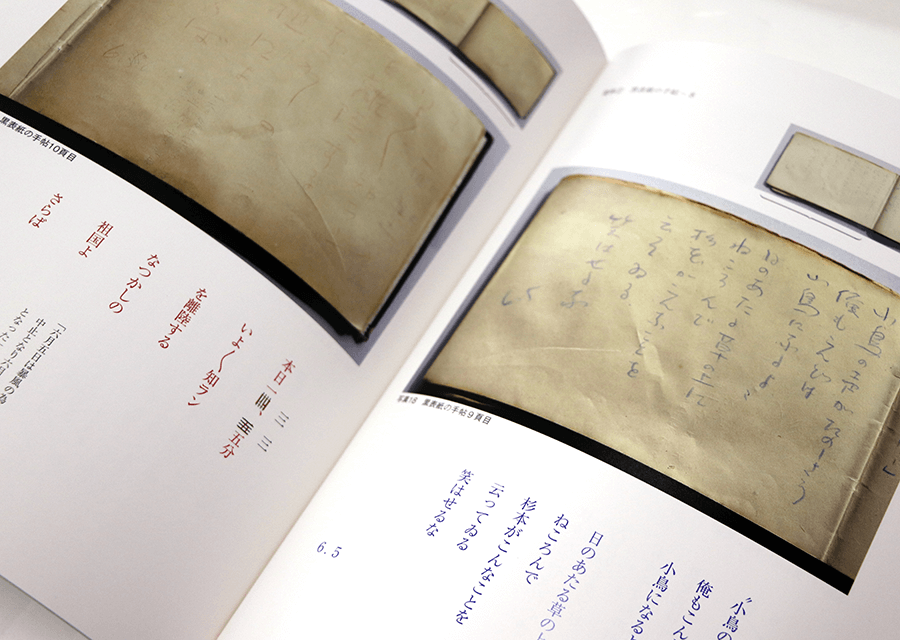 小鳥の声がたのしさう
俺もこんどは
小鳥になるよ
日のあたる草の上に
ねころんで
杉本がこんなことを
云つてゐる
笑はせるな
写真18 黒表紙の手帖9頁目
“小鳥の
俺もこん
小鳥になる
日のあたる草の
ねころんで
杉本がこんなことを
云ってゐる
笑はせるな
6.5
黒表紙の手帖10頁目
三 三
本日一四、五五分
いよ〳〵知ラン
を離陸する
なつかしの
祖国よ
さらば
「六月五日は暴風の為
中止となり
となった